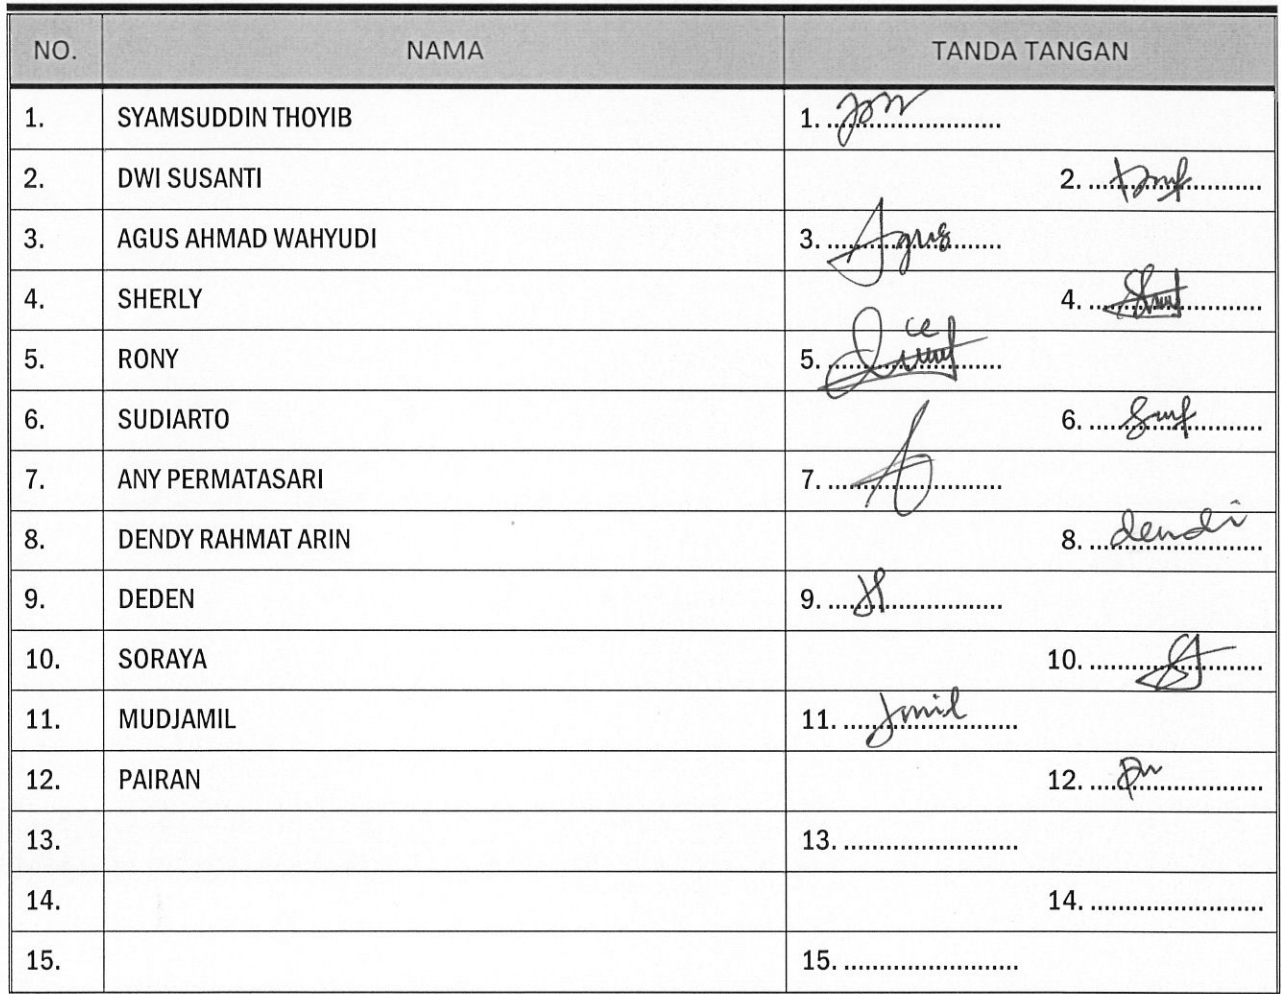 NO. NAMA TANDA TANGAN
1. SYAMSUDDIN THOYIB 1. ........................
2. DWI SUSANTI 2. ........................
3. AGUS AHMAD WAHYUDI 3. Agus
4. SHERLY 4. ........................
5. RONY 5. ........................
6. SUDIARTO 6. ........................
7. ANY PERMATASARI 7. ........................
8. DENDY RAHMAT ARIN 8. dendi
9. DEDEN 9. ........................
10. SORAYA 10. ........................
11. MUDJAMIL 11. Jamil
12. PAIRAN 12. ........................
13. 13. ........................
14. 14. ........................
15. 15. ........................